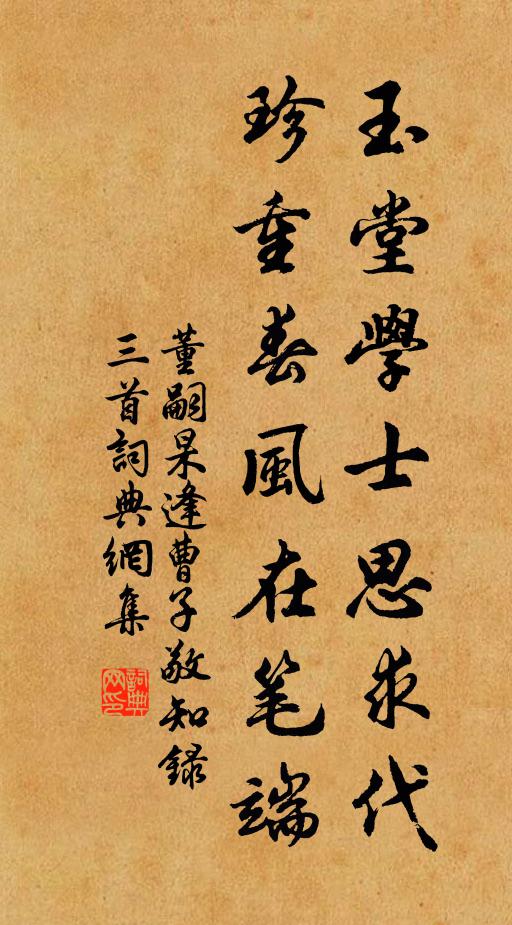 玉堂學士思求代
珍重春風在笔端
董嗣杲逢曹子敬知錄
三首詞典網集
詞典网印